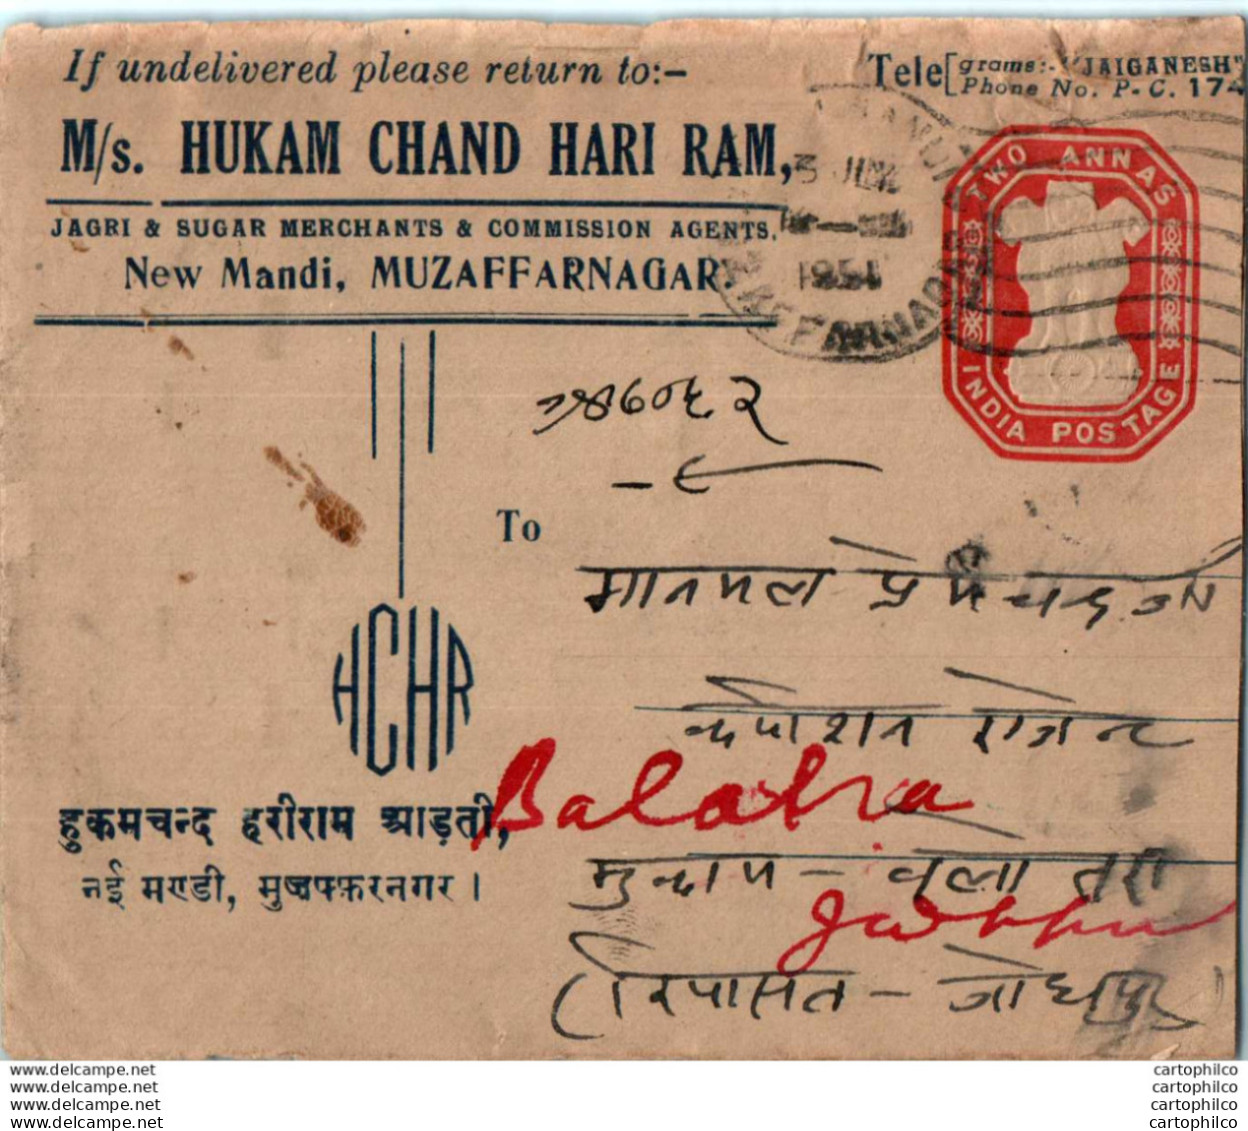 If undelivered please return to:-
Tele[grams:- "JAIGANESH"
Phone No. P-C. 174
M/s. HUKAM CHAND HARI RAM,
JAGRI & SUGAR MERCHANTS & COMMISSION AGENTS.
New Mandi, MUZAFFARNAGAR.
TWO ANNAS
INDIA POSTAGE
1954
To
मानमल प्रेमचन्द जी
HCHR
Balotra
हुकमचन्द हरीराम आड़ती,
नई मण्डी, मुज़फ्फ़रनगर।
मुकाम - वालोतरा
(रियासत - जोधपुर)
www.delcampe.net
www.delcampe.net
www.delcampe.net
www.delcampe.net
cartophilco
cartophilco
cartophilco
cartophilco